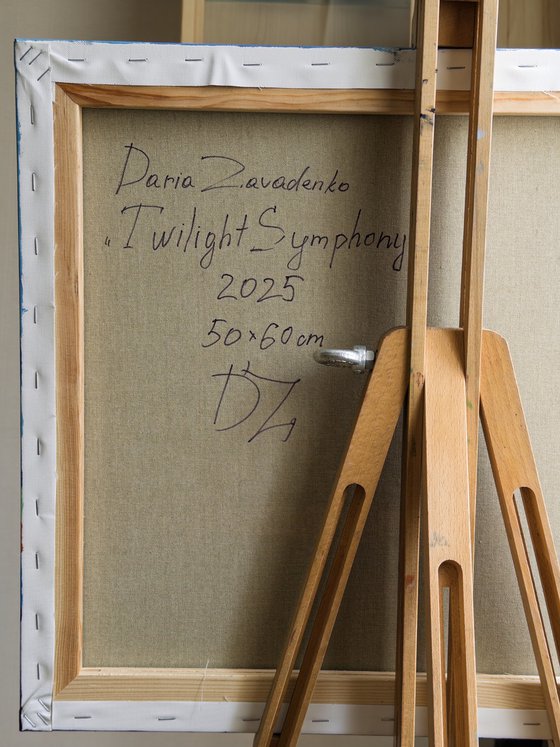 Daria Zavadenko
„Twilight Symphony
2025
50×60 cm
DZ